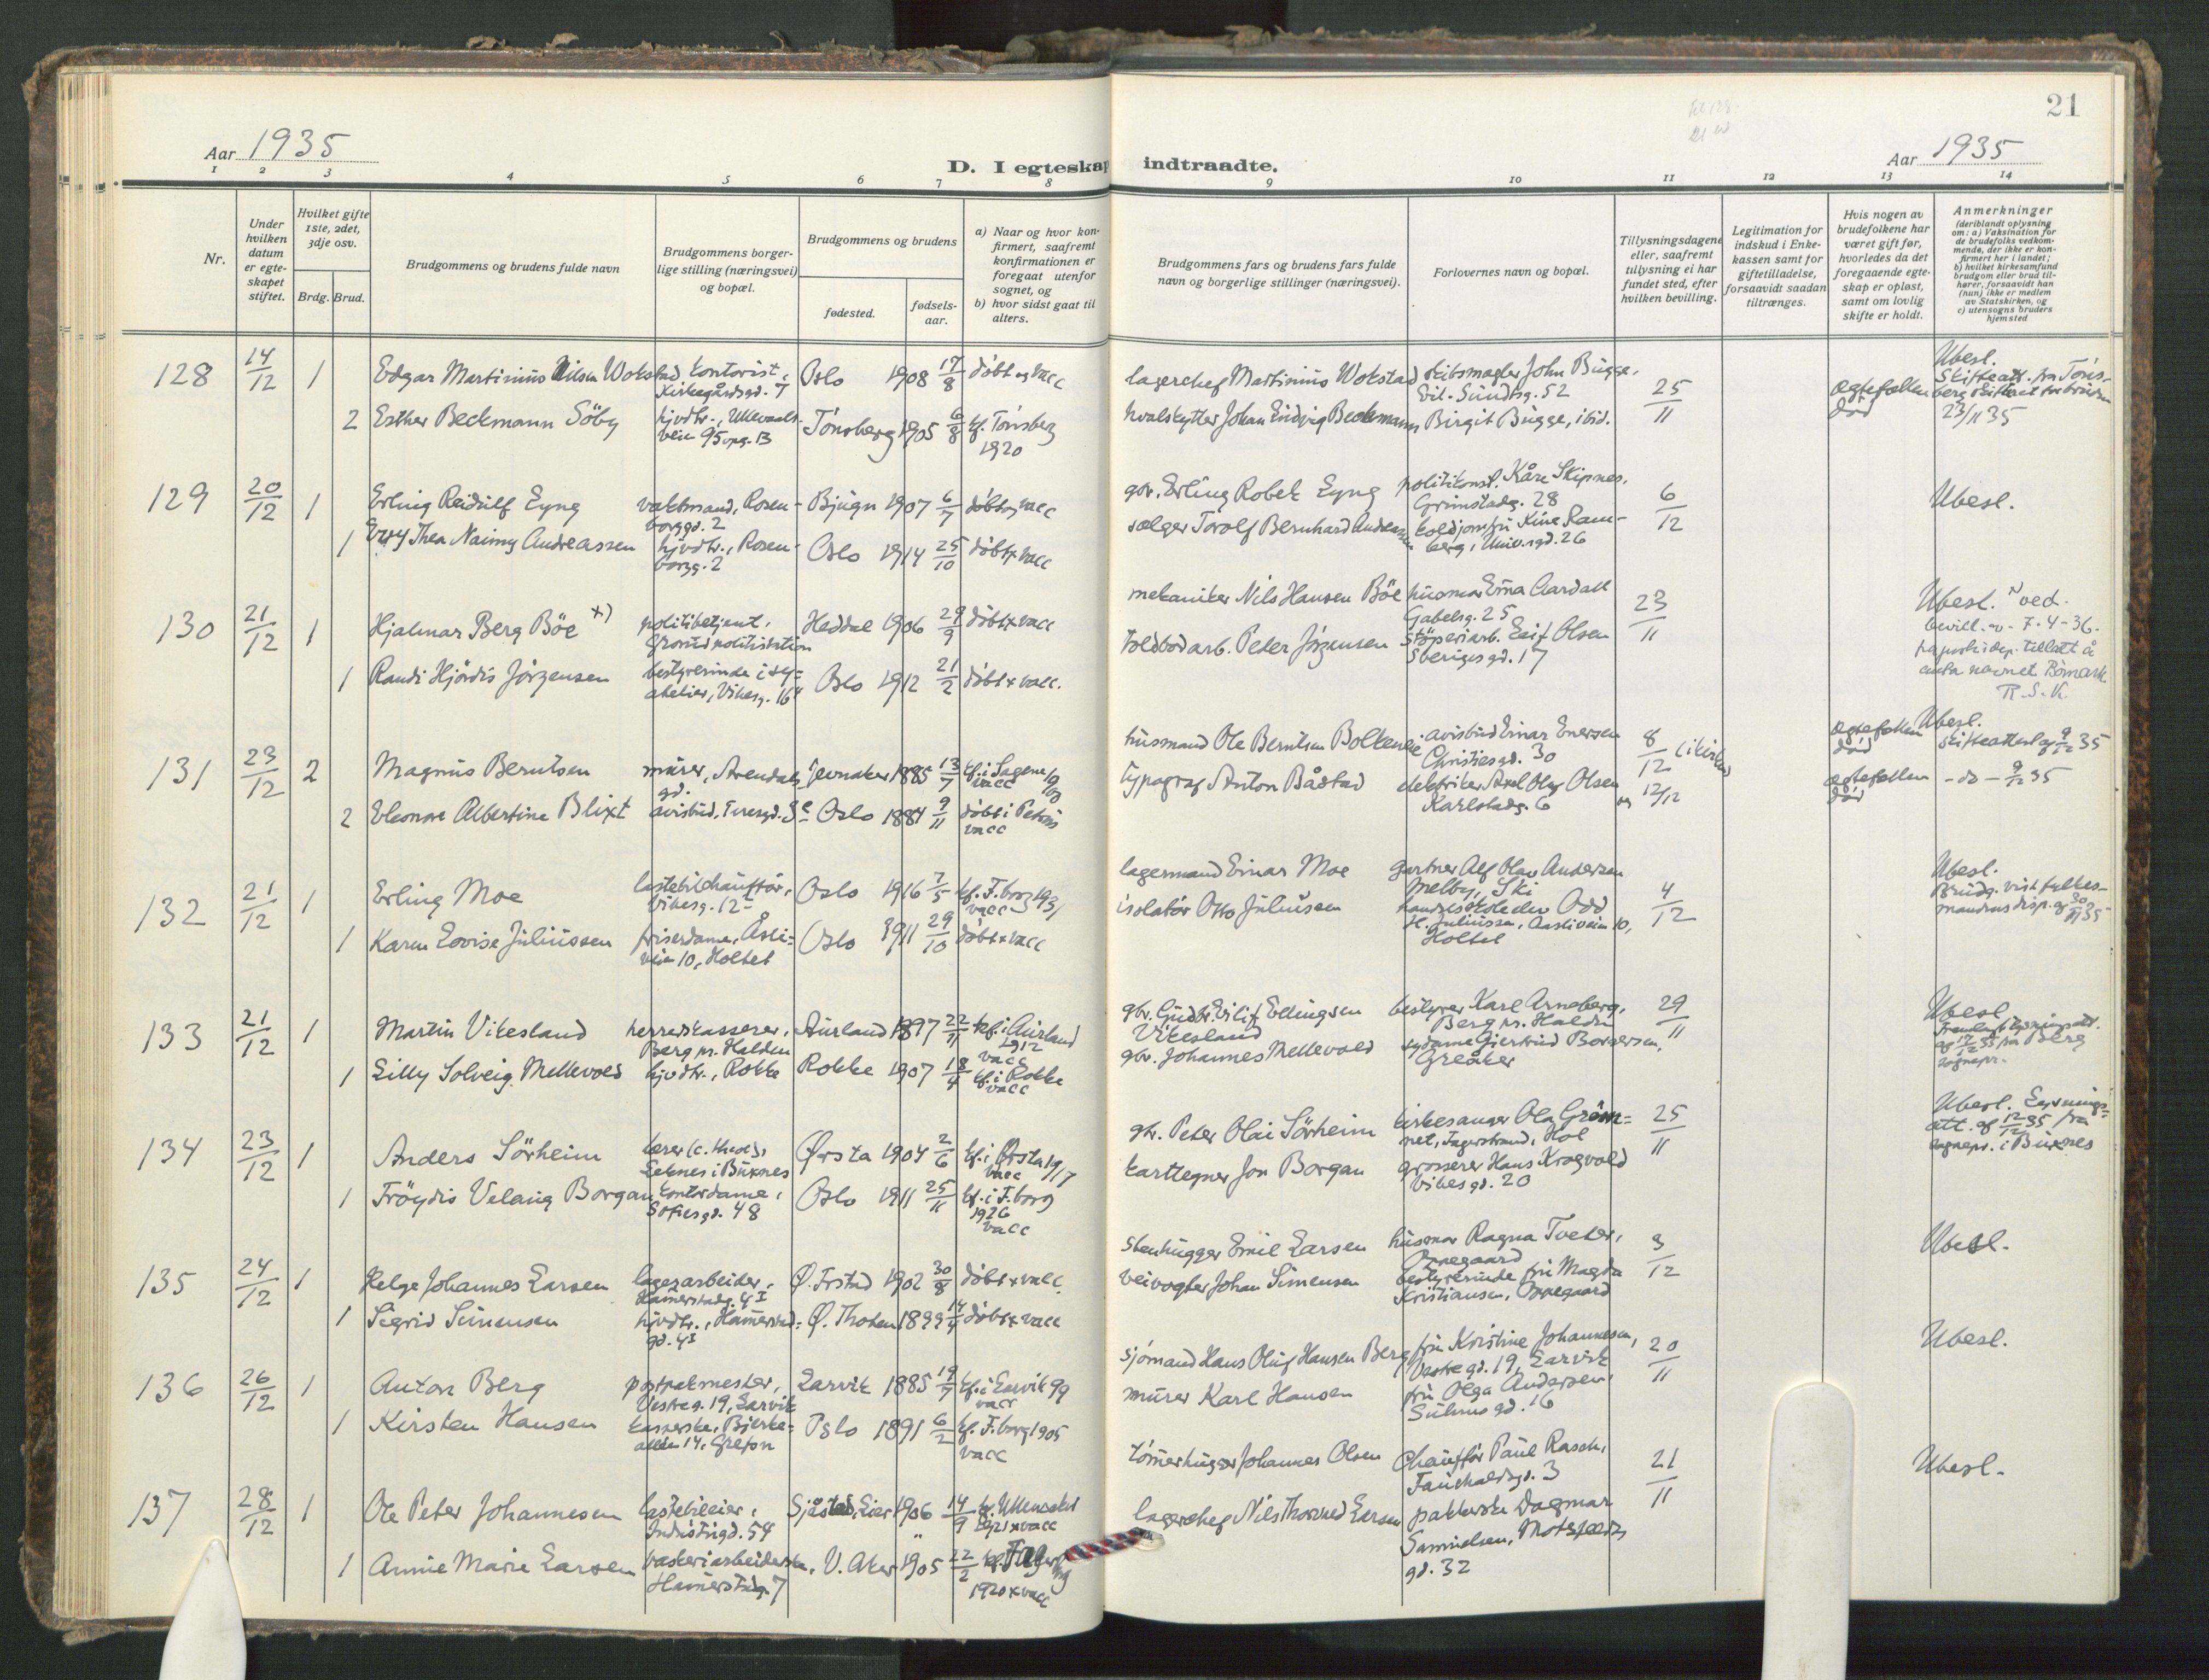 21
Aar 1935
D. I egteskap indtraadte.
Aar 1935
1 2 3 4 5 6 7 8 9 10 11 12 13 14
Nr.
Under hvilken datum er egte-skapet stiftet.
Hvilket gifte 1ste, 2det, 3dje osv.
Brdg. Brud.
Brudgommens og brudens fulde navn
Brudgommens borger-lige stilling (næringsvei) og bopæl.
Brudgommens og brudens
fødested.
fødsels-aar.
a) Naar og hvor kon-firmert, saafremt konfirmationen er foregaat utenfor sognet, og
b) hvor sidst gaat til alters.
Brudgommens fars og brudens fars fulde navn og borgerlige stillinger (næringsvei).
Forlovernes navn og bopæl.
Tillysningsdagene eller, saafremt tillysning ei har fundet sted, efter hvilken bevilling.
Legitimation for indskud i Enke-kassen samt for giftetilladelse, forsaavidt saadan tiltrænges.
Hvis nogen av brudefolkene har været gift før, hvorledes da det foregaaende egte-skap er opløst, samt om lovlig skifte er holdt.
Anmerkninger (deriblandt oplysning om: a) Vaksination for de brudefolks vedkom-mende, der ikke er kon-firmert her i landet; b) hvilket kirkesamfund brudgom eller brud til-hører, forsaavidt han (hun) ikke er medlem av Statskirken, og c) utensogns bruders hjemsted
128 14/12 1 Edgar Martinius Nilsen Wokstad kontorist, Kirkegårdsgd. 7 Oslo 1908 17/8 døbt og vacc lagerchef Martinius Wokstad skibsmægler John Bugge, Eil. Sundtsg. 52 25/11 egtefellen død Ubesl. Skifteatt. fra Tøns-berg 23/11 35
2 Esther Beckmann Söby hjvdtr., Ullevaals-veien 95 opg. B Tønsberg 1905 6/8 kf. Tønsberg 1920 hvalskytter Johan Ludvig Beckmann Birgit Bugge, ibid.
129 20/12 1 Erling Reidulf Eyng vaktmand, Rosen-borggd. 2 Bjugn 1907 6/7 døbt og vacc gbr. Erling Robek Eyng politikonst. Kåre Skipnes, Grimstadg. 28 6/12 Ubesl.
1 Thea Naimy Andreassen hjvdtr., Rosen-borgg. 2 Oslo 1914 25/10 døbt x vacc sælger Torolf Bernhard Andreassen koldjomfru Kine Ram-berg, Univ.sgd. 26
130 21/12 1 Hjalmar Berg Böe x) politibetjent, Grorud politistation Heddal 1906 29/9 døbt x vacc mekaniker Nils Hansen Böe husmor Erna Aardall Gabelsg. 25 23/11 Ubesl. x) ved bevill. av 7-4-36. fra justisdep. tillatt å anta navnet Bömark R. S. K.
1 Randi Hjördis Jörgensen bestyrerinde i sy-atelier, Vibesg. 16 Oslo 1912 21/2 døbt x vacc. toldbodarb. Peter Jörgensen støperiarb. Leif Olsen Sverigesgd. 17
131 23/12 2 Magnus Berntsen murer, Arendals-gd. Jevnaker 1885 13/7 kf. i Sagene vacc husmand Ole Berntsen avisbud Einar Enersen Christiesgd. 30 8/12 (i kirken) egtefellen død Ubesl. skifteattest af 9/12 35
2 Eleonore Albertine Blixt avisbud, Oslo 1884 9/11 døbt i Petrus vacc typograf Anton Båstad elektriker Axel Olaf Olsen Karlstadg. 6 og 12/12 egtefellen død - do - 9/12 35
132 21/12 1 Erling Moe lastebilchauffør, Vibesg. 12 Oslo 1916 7/5 kf. F.borg 1931 vacc lagermand Einar Moe gartner Alf Olav Andersen Melby, Ski 4/12 Ubesl. Brudg. vist fylkes-mandens disp. af 30/11 35
1 Karen Lovise Juliussen friserdame, Åsli-veien 10, Holtet Oslo 1911 29/10 døbt x vacc isolatør Otto Juliussen Odd H. Juliussen, Aasliveien 10, Holtet
133 21/12 1 Martin Vikesland herredskasserer, Berg pr. Halden Aurland 1897 22/11 kf. i Aurland 1912 vacc gbr. Eilif Ellingsen Vikesland bestyrer Karl Arneberg, Berg pr. Halden 29/11 Ubesl. Fremlagt lysningsatt. af 17/12 35 fra Berg sognepr.
1 Lilly Solveig Mellevold hjvdtr., Rokke Rokke 1907 18/4 kf. i Rokke vacc gbr. Johannes Mellevold sydame Gjertrud Borgersen, Greåker
134 23/12 1 Anders Sörheim lærer (c. theol), Leknes i Buksnes Ørsta 1904 2/6 kf. i Ørsta 1917 vacc gbr. Peter Olai Sörheim kirkesanger Ola Gröin-net, Fagerstrand, Hol 25/11 Ubesl. Lysnings-att. af 12/12 35 fra sognepr. i Buksnes
1 Tröydis Velaug Borgan kontordame, Sofiesgd. 48 Oslo 1911 25/11 kf. i F.borg 1926 vacc karttegner Jon Borgan grosserer Hans Kragvold Vibesgd. 20
135 24/12 1 Helge Johannes Larsen lagerarbeider, Hammerstadg. 4 I Ø. Frstad 1902 30/8 døbt x vacc. stenhugger Emil Larsen husmor Ragna Tveter, Oppegaard 3/12 Ubesl.
1 Sigrid Simensen hjvdtr., Hammerstad-gd. 4 I Ø. Thoten 1899 14/4 døbt x vacc veivogter Johan Simensen bestyrerinde fru Magda Kristiansen, Oppegaard
136 26/12 1 Anton Berg portrætmester, Vestreg. 19, Larvik Larvik 1885 19/7 kf. i Larvik 99 vacc sjømand Hans Oluf Hansen Berg fru Kristine Johannesen, Vestregd. 19, Larvik 20/11 Ubesl.
1 Kirsten Hansen kasserske, Bjerke-alléen 14, Grefsen Oslo 1891 6/2 kf. F.borg 1905 vacc murer Karl Hansen fru Olga Andersen, Suhmsgd. 16
137 28/12 1 Ole Peter Johannesen lastebileier, Industrigd. 54 1906 14/9 kf. Ullensaker 1921 x vacc tømmerhugger Johannes Olsen Chauffør Paul Rasch, Fauchaldsgd. 3 21/11 Ubesl.
1 Annie Marie Larsen vaskeriarbeiderske, Hammerstadg. 7 V. Aker 1905 22/2 1920 x vacc lagerchef Nils Thorvald Larsen pakkerske Dagmar Samuelsen, Motzfeldts gd. 32